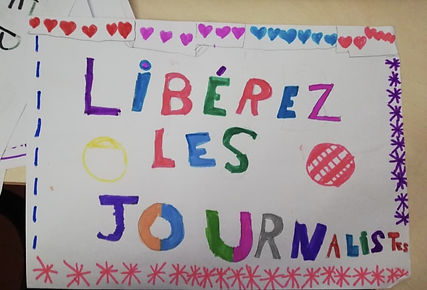 LIBÉREZ
LES
JOURNALISTES